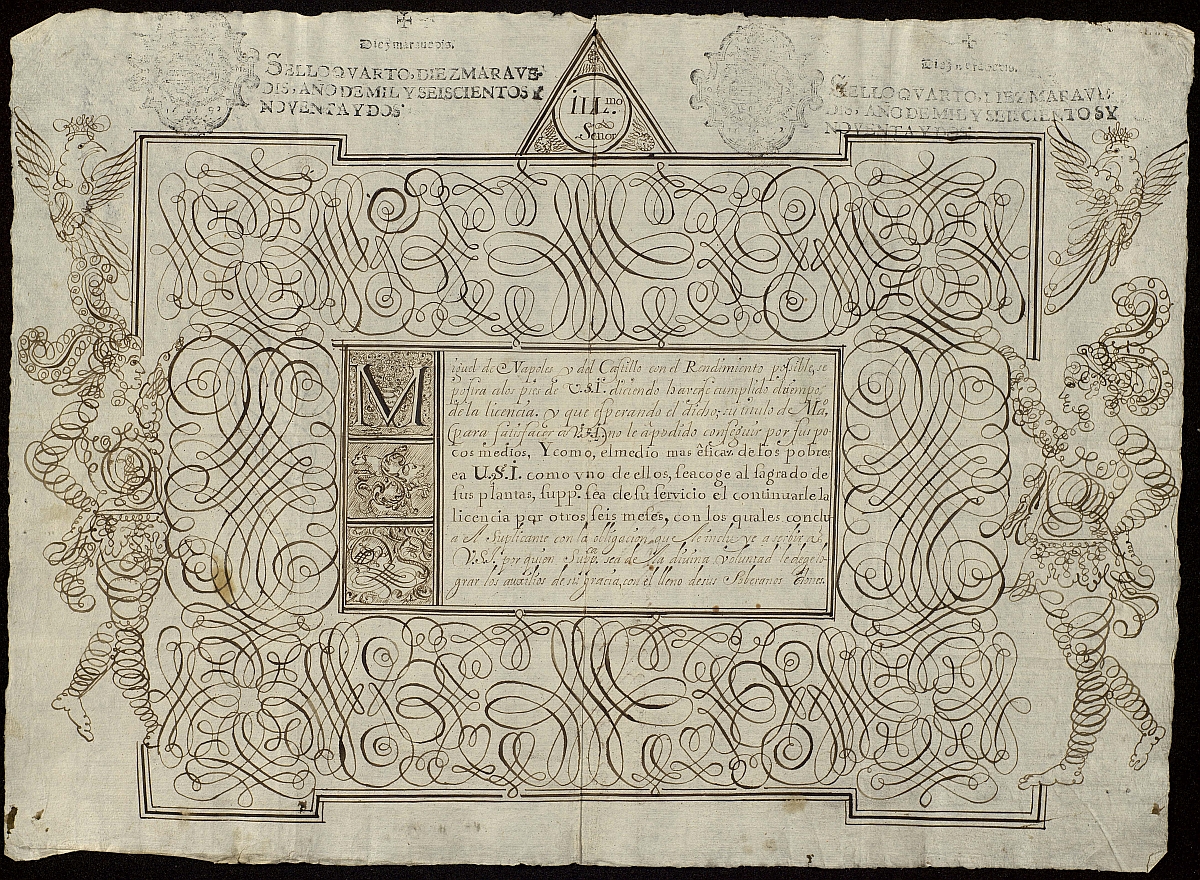 Diez maravedis.
SELLO QVARTO, DIEZ MARAVE-
DIS, AÑO DE MIL Y SEISCIENTOS Y
NOVENTA Y DOS
Ill.mo
Señor
Diez maravedis.
SELLO QVARTO, DIEZ MARAVE
DIS, AÑO DE MIL Y SEISCIENTOS Y
NOVENTA Y DOS
Miguel de Napoles y del Castillo con el Rendimiento posible, se
postra a los pies de V.S.I. diciendo haverse cumplido el tiempo
de la licencia. y que esperando el dicho, su titulo de Ma.
para satisfacer a V.S.I. no le a podido conseguir por sus po-
cos medios, Y como, el medio mas eficaz de los pobres
ea V.S.I. como vno de ellos, se acoge al sagrado de
sus plantas, supp.ca sea de su servicio el continuarle la
licencia por otros seis meses, con los quales conclu
a el Suplicante con la obligacion que le incluye a servir a
V.S.I. por quien Supp.ca sea de la divina voluntad
grar los auxilios de su gracia, con el lleno de sus Soberanos dones.